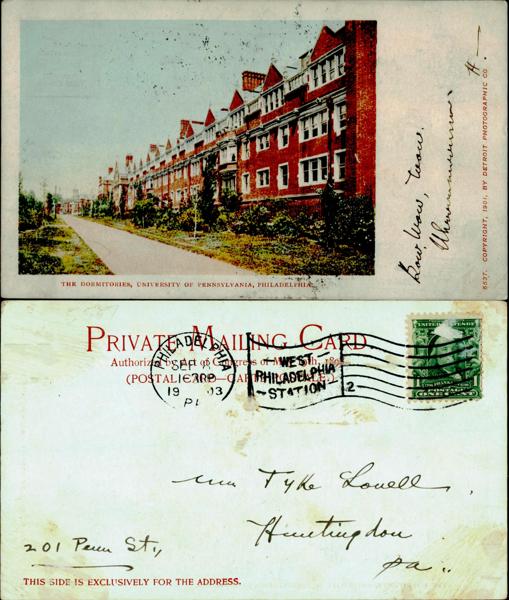 THE DORMITORIES, UNIVERSITY OF PENNSYLVANIA, PHILADELPHIA.
5527. COPYRIGHT, 1901, BY DETROIT PHOTOGRAPHIC CO.
PRIVATE MAILING CARD.
Authorized by Act of Congress of May 19th, 189
(POSTAL CARD—CARTE POSTALE.)
PHILADELPHIA
SEP
1903
PA
WEST
PHILADELPHIA
STATION
2
UNITED STATES OF
1
ONE CENT
Tyke Lovell,
Huntingdon
Pa..
201 Penn St.,
THIS SIDE IS EXCLUSIVELY FOR THE ADDRESS.